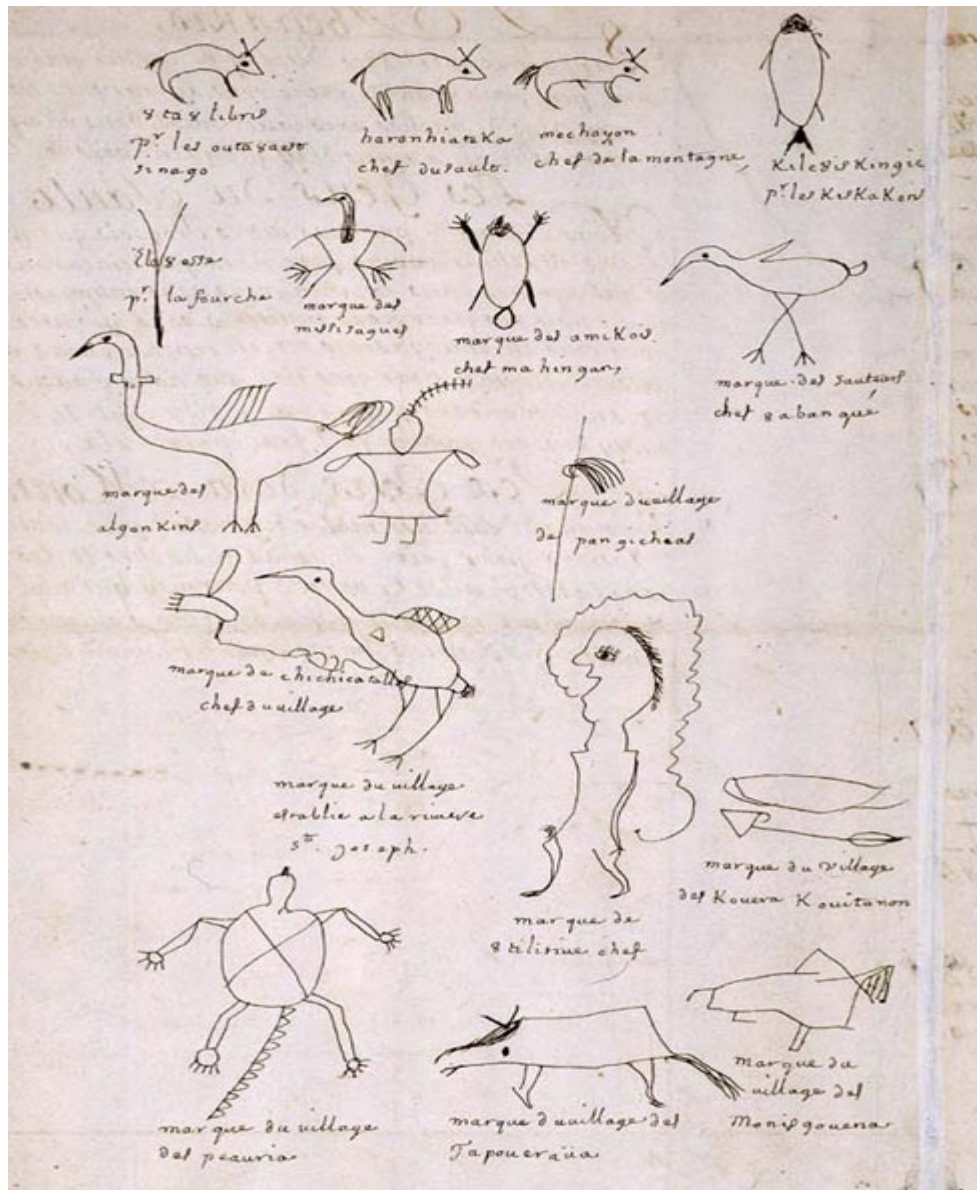 8ta8libris
pr. les outa8aes
sinago
haronhiateka
chef du sault.
mechayon
chef de la montagne,
Kile8isKingie
pr. les KisKaKons
Ela8esse
pr. la fourche
marque des
missisagues
marque des amikois.
chef mahingan,
marque des sauteurs
chef 8abangué
marque des
algonkins
marque du village
de pangicheas
marque de chichicatalle
chef du village
marque du village
establie a la riviere
st. Joseph.
marque de
8tilirine chef
marque du village
des Kouera Kouitanon
marque du village
des peauria
marque du village des
Tapoueraüa
marque du
village des
Monisgouena